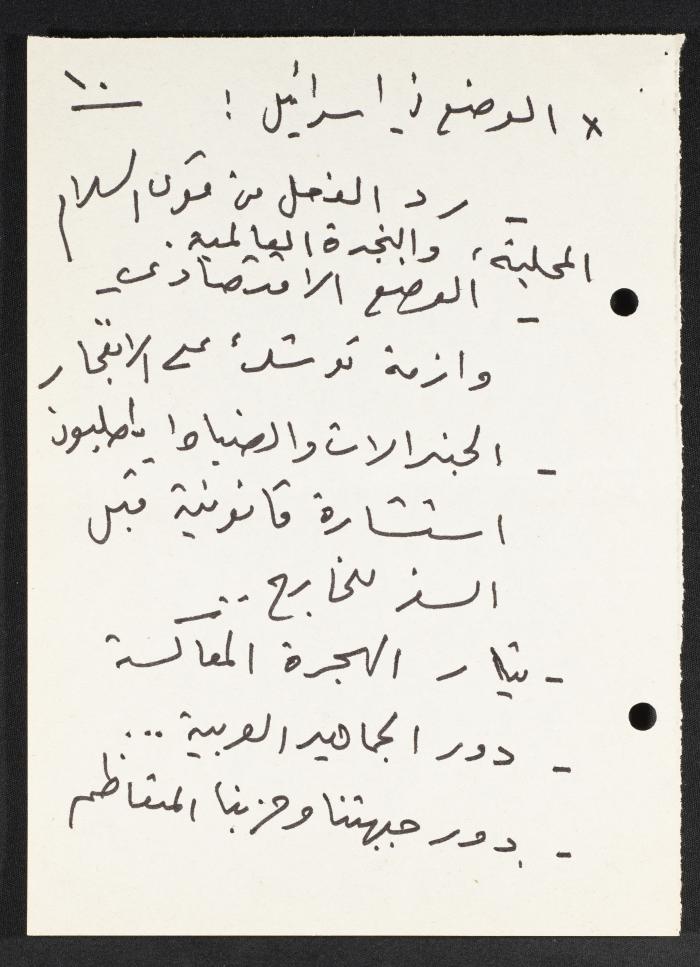 ١٠
× الوضع في اسرائيل !
- رد الفعل من قوى السلام
المحلية، والنجدة العالمية.
- الوضع الاقتصادي
وازمة توشك على الانفجار
- الجنرالات والضباط يطلبون
استشارة قانونية قبل
السفر للخارج ..
- تيار الهجرة المعاكسة
- دور الجماهير العربية ...
- دور جبهتنا وحزبنا المتعاظم